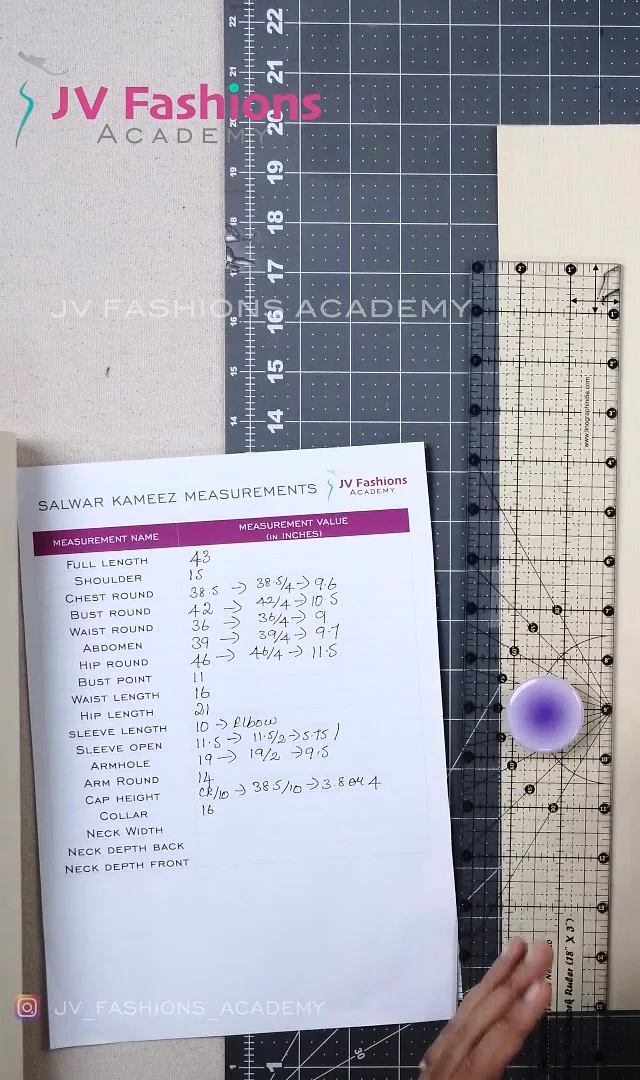 JV Fashions
ACADEMY
JV FASHIONS ACADEMY
SALWAR KAMEEZ MEASUREMENTS
JV Fashions
ACADEMY
MEASUREMENT NAME MEASUREMENT VALUE (IN INCHES)
FULL LENGTH 43
SHOULDER 15
CHEST ROUND 38.5 → 38.5/4 → 9.6
BUST ROUND 42 → 42/4 → 10.5
WAIST ROUND 36 → 36/4 → 9
ABDOMEN 39 → 39/4 → 9.7
HIP ROUND 46 → 46/4 → 11.5
BUST POINT 11
WAIST LENGTH 16
HIP LENGTH 21
SLEEVE LENGTH 10 → Elbow
SLEEVE OPEN 11.5 → 11.5/2 → 5.75
ARMHOLE 19 → 19/2 → 9.5
ARM ROUND 14
CAP HEIGHT CR/10 → 38.5/10 → 3.8 or 4
COLLAR 16
NECK WIDTH
NECK DEPTH BACK
NECK DEPTH FRONT
JV_FASHIONS_ACADEMY
22
21
20
19
18
17
16
15
14
1
30
www.linographindia.com
Ruler (18" X 3")